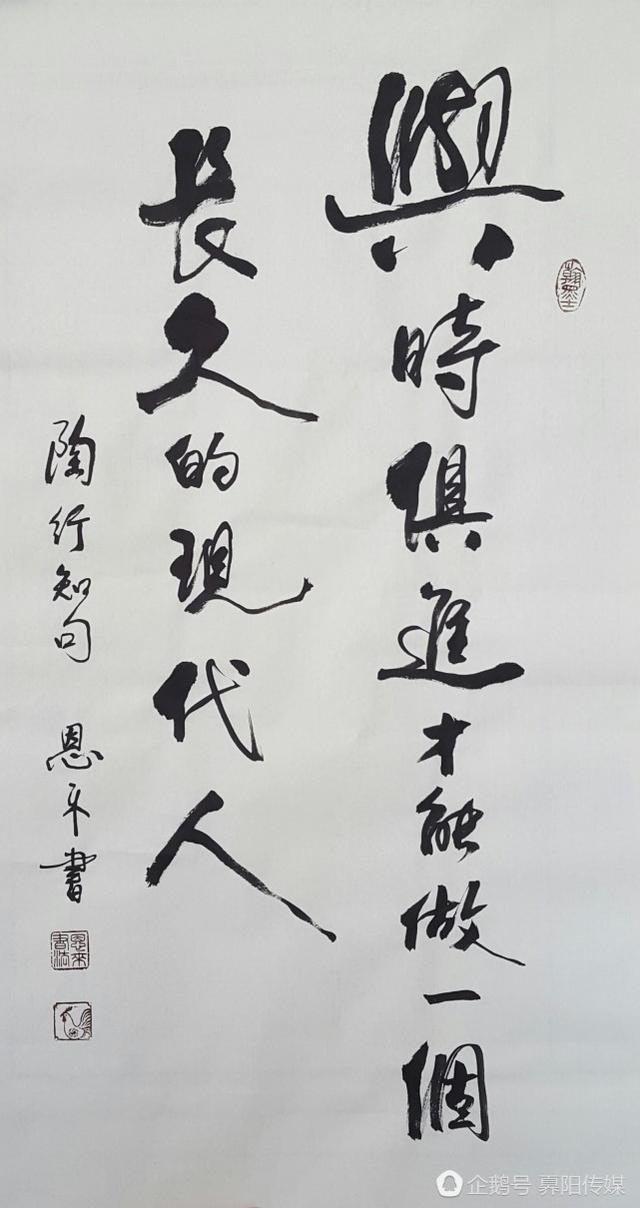 與時俱進才能做一個
長久的現代人
陶行知句 恩来書
翰墨
企鹅号 阳传媒